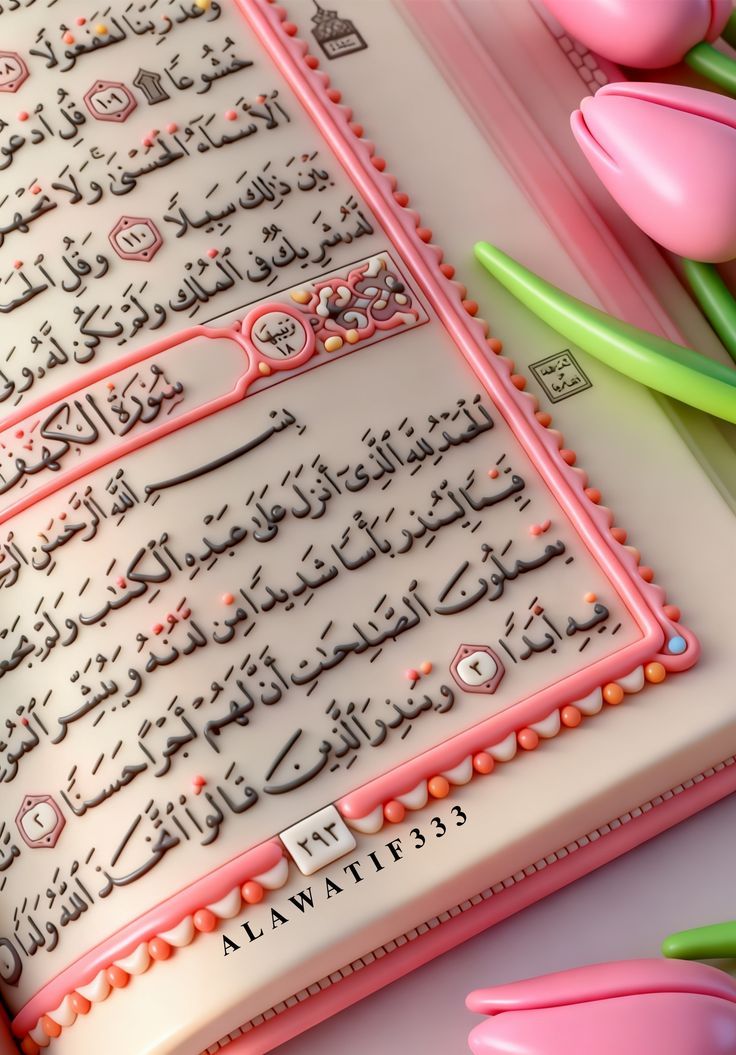 وَعْدُ رَبِّنَا لَمَفْعُولًا ١٠٨
خُشُوعًا ۩ ١٠٩ قُلِ ٱدْعُو
ٱلْأَسْمَآءُ ٱلْحُسْنَىٰ وَلَا تَجْهَر
بَيْنَ ذَٰلِكَ سَبِيلًا ١١٠ وَقُلِ ٱلْحَم
لَّهُۥ شَرِيكٌ فِى ٱلْمُلْكِ وَلَمْ يَكُن لَّهُۥ وَلِى
ترتيبها ١٨
سُورَةُ الكَهْف
بِسْمِ ٱللَّهِ ٱلرَّحْمَٰنِ
ٱلْحَمْدُ لِلَّهِ ٱلَّذِىٓ أَنزَلَ عَلَىٰ عَبْدِهِ ٱلْكِتَٰبَ وَلَمْ يَجْعَ
قَيِّمًا لِّيُنذِرَ بَأْسًا شَدِيدًا مِّن لَّدُنْهُ وَيُبَشِّرَ ٱلْمُؤْ
يَعْمَلُونَ ٱلصَّٰلِحَٰتِ أَنَّ لَهُمْ أَجْرًا حَسَنًا ٢
فِيهِ أَبَدًا ٣ وَيُنذِرَ ٱلَّذِينَ قَالُوا۟ ٱتَّخَذَ ٱللَّهُ وَلَدًا
٢٩٣
ALAWATIF333